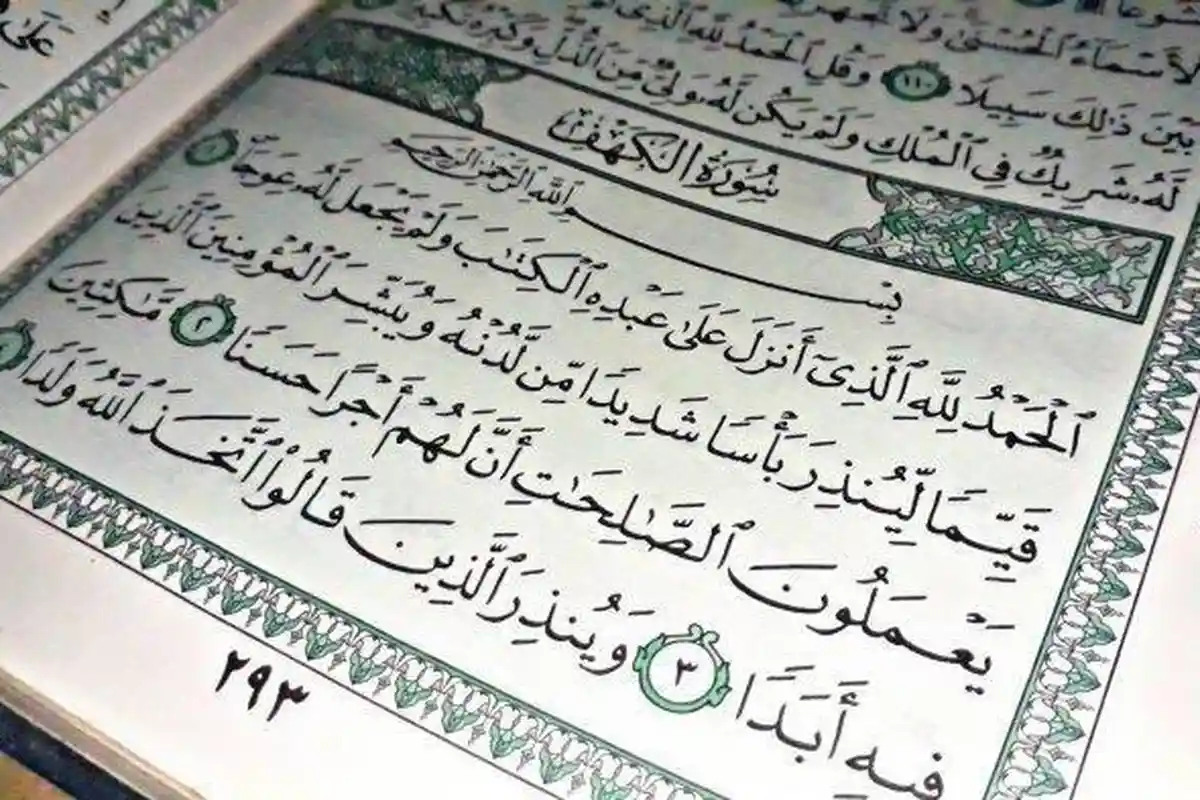 لَأَسْمَاءُ ٱلْحُسْنَىٰ وَلَا تَجْهَرْ
بَيْنَ ذَٰلِكَ سَبِيلًا ١١٠ وَقُلِ ٱلْحَمْدُ لِلَّهِ ٱلَّذِى لَمْ
لَّهُۥ شَرِيكٌ فِى ٱلْمُلْكِ وَلَمْ يَكُن لَّهُۥ وَلِىٌّ مِّنَ ٱلذُّلِّ وَكَبِّرْهُ تَكْبِيرًا
سُورَةُ الْكَهْفِ
بِسْمِ ٱللَّهِ ٱلرَّحْمَٰنِ ٱلرَّحِيمِ
ٱلْحَمْدُ لِلَّهِ ٱلَّذِىٓ أَنزَلَ عَلَىٰ عَبْدِهِ ٱلْكِتَٰبَ وَلَمْ يَجْعَل لَّهُۥ عِوَجَا ١
قَيِّمًا لِّيُنذِرَ بَأْسًا شَدِيدًا مِّن لَّدُنْهُ وَيُبَشِّرَ ٱلْمُؤْمِنِينَ ٱلَّذِينَ
يَعْمَلُونَ ٱلصَّٰلِحَٰتِ أَنَّ لَهُمْ أَجْرًا حَسَنًا ٢ مَّٰكِثِينَ
فِيهِ أَبَدًا ٣ وَيُنذِرَ ٱلَّذِينَ قَالُوا۟ ٱتَّخَذَ ٱللَّهُ وَلَدًا
٢٩٣